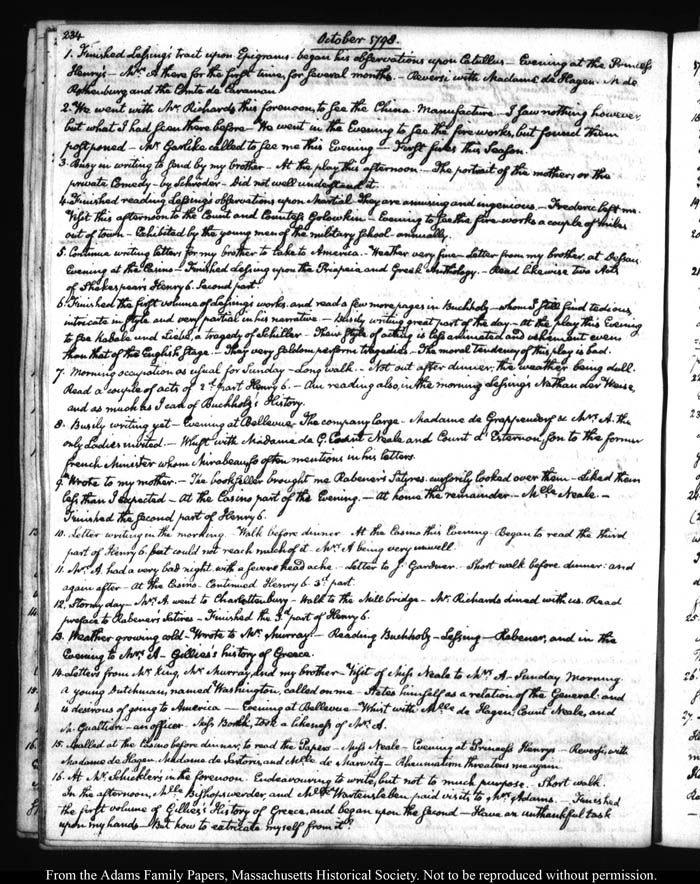 234
October 1798.
1. Finished Lessing's trait upon Epigrams. began his observations upon Catullus — Evening at the Princess
Henry's — Mrs. A there for the first time, for several months. — Reversi with Madame de Hagen. M de
Rothenburg and the Comte de Caraman
2. We went with Mr. Richards this forenoon to see the China-Manufacture — I saw nothing however
but what I had seen there before — We went in the Evening to see the fire works, but found them
postponed — Mr. Garlike called to see me this Evening — First fires this Season.
3. Busy in writing to send by my brother — At the play this afternoon. — The portrait of the mother; or the
private Comedy — by Schröder — Did not well understand it.
4. Finished reading Lessing's observations upon Martial. They are amusing and ingenious. — Frederic left me.
Visit this afternoon to the Count and Countess Golowkin — Evening to see the fire-works a couple of miles
out of town — Exhibited by the young men of the military school — annually.
5. Continue writing letters for my brother to take to America. Weather very fine — Letter from my brother, at Dessau
Evening at the Casino — Finished Lessing upon the Priapeia and Greek Anthology. — Read likewise two Acts
of Shakespear's Henry 6. Second part.
6. Finished the first volume of Lessing's works, and read a few more pages in Buchholz — whom I still find tedious,
intricate in style and very partial in his narrative — Busily writing great part of the day — At the play this Evening
to see Kabale und Liebe, a tragedy of Schiller — Their style of acting is less animated and vehement even
than that of the English stage — They very seldom perform tragedies — The moral tendency of this play is bad.
7. Morning occupation as usual for Sunday — Long walk. — Not out after dinner, the weather being dull.
Read a couple of acts of 2d. part Henry 6. — Am reading also, in the morning Lessing's Nathan der Weise,
and as much as I can of Buchholz's History.
8. Busily writing yet — Evening at Bellevue — The company large — Madame de Grappendorf & Mrs. A. the
only Ladies invited. — Whist with Madame de G. Count Neale, and Count d'Esternon, son to the former
french Minister whom Mirabeau so often mentions in his letters.
9. Wrote to my mother. — The bookseller brought me Rabener's Satyres. cursorily looked over them — Liked them
less than I expected — At the Casino part of the Evening. — At home the remainder — Mlle Neale. —
Finished the second part of Henry 6.
10. Letter writing in the morning. — Walk before dinner. At the Casino this Evening. Began to read the third
part of Henry 6, but could not reach much of it. Mrs. A being very unwell.
11. Mrs. A had a very bad night, with a severe head ache. — Letter to J. Gardner. Short walk before dinner: and
again after — At the Casino — Continued Henry 6. 3d. part.
12. Stormy day — Mrs. A went to Charlottenburg — Walk to the Mill bridge — Mr. Richards dined with us. Read
preface to Rabeners Satires — Finished the 3d. part of Henry 6.
13. Weather growing cold. Wrote to Mr. Murray. — Reading Buchholz — Lessing — Rabener, and in the
Evening to Mrs. A — Gillies's history of Greece.
14. Letters from Mr. King, Mr. Murray, and my brother — Visit of Miss Neale to Mrs. A — Sunday Morning
a young Dutchman, named Washington, called on me — States himself as a relation of the General: and
is desirous of going to America — Evening at Bellevue — Whist with Mlle de Hagen, Count Neale, and
M. Gualtieri — an officer. Miss Bothh, took a likeness of Mrs. A.
15. Called at the Casino before dinner, to read the Papers — Miss Neale — Evening at Princess Henry's — Reversi, with
Madame de Hagen, Madame de Sartoris, and Mlle de Marwitz — Rheumatism threatens me again.
16. At Mr. Schickler's in the forenoon. Endeavouring to write, but not to much purpose. Short walk.
In the afternoon, Mlle Bishopswerder and Mlle Wartensleben paid visits to Mrs. Adams. Finished
the first volume of Gillies's History of Greece, and began upon the Second — Have an unthankful task
upon my hands — But how to extricate myself from it?
From the Adams Family Papers, Massachusetts Historical Society. Not to be reproduced without permission.